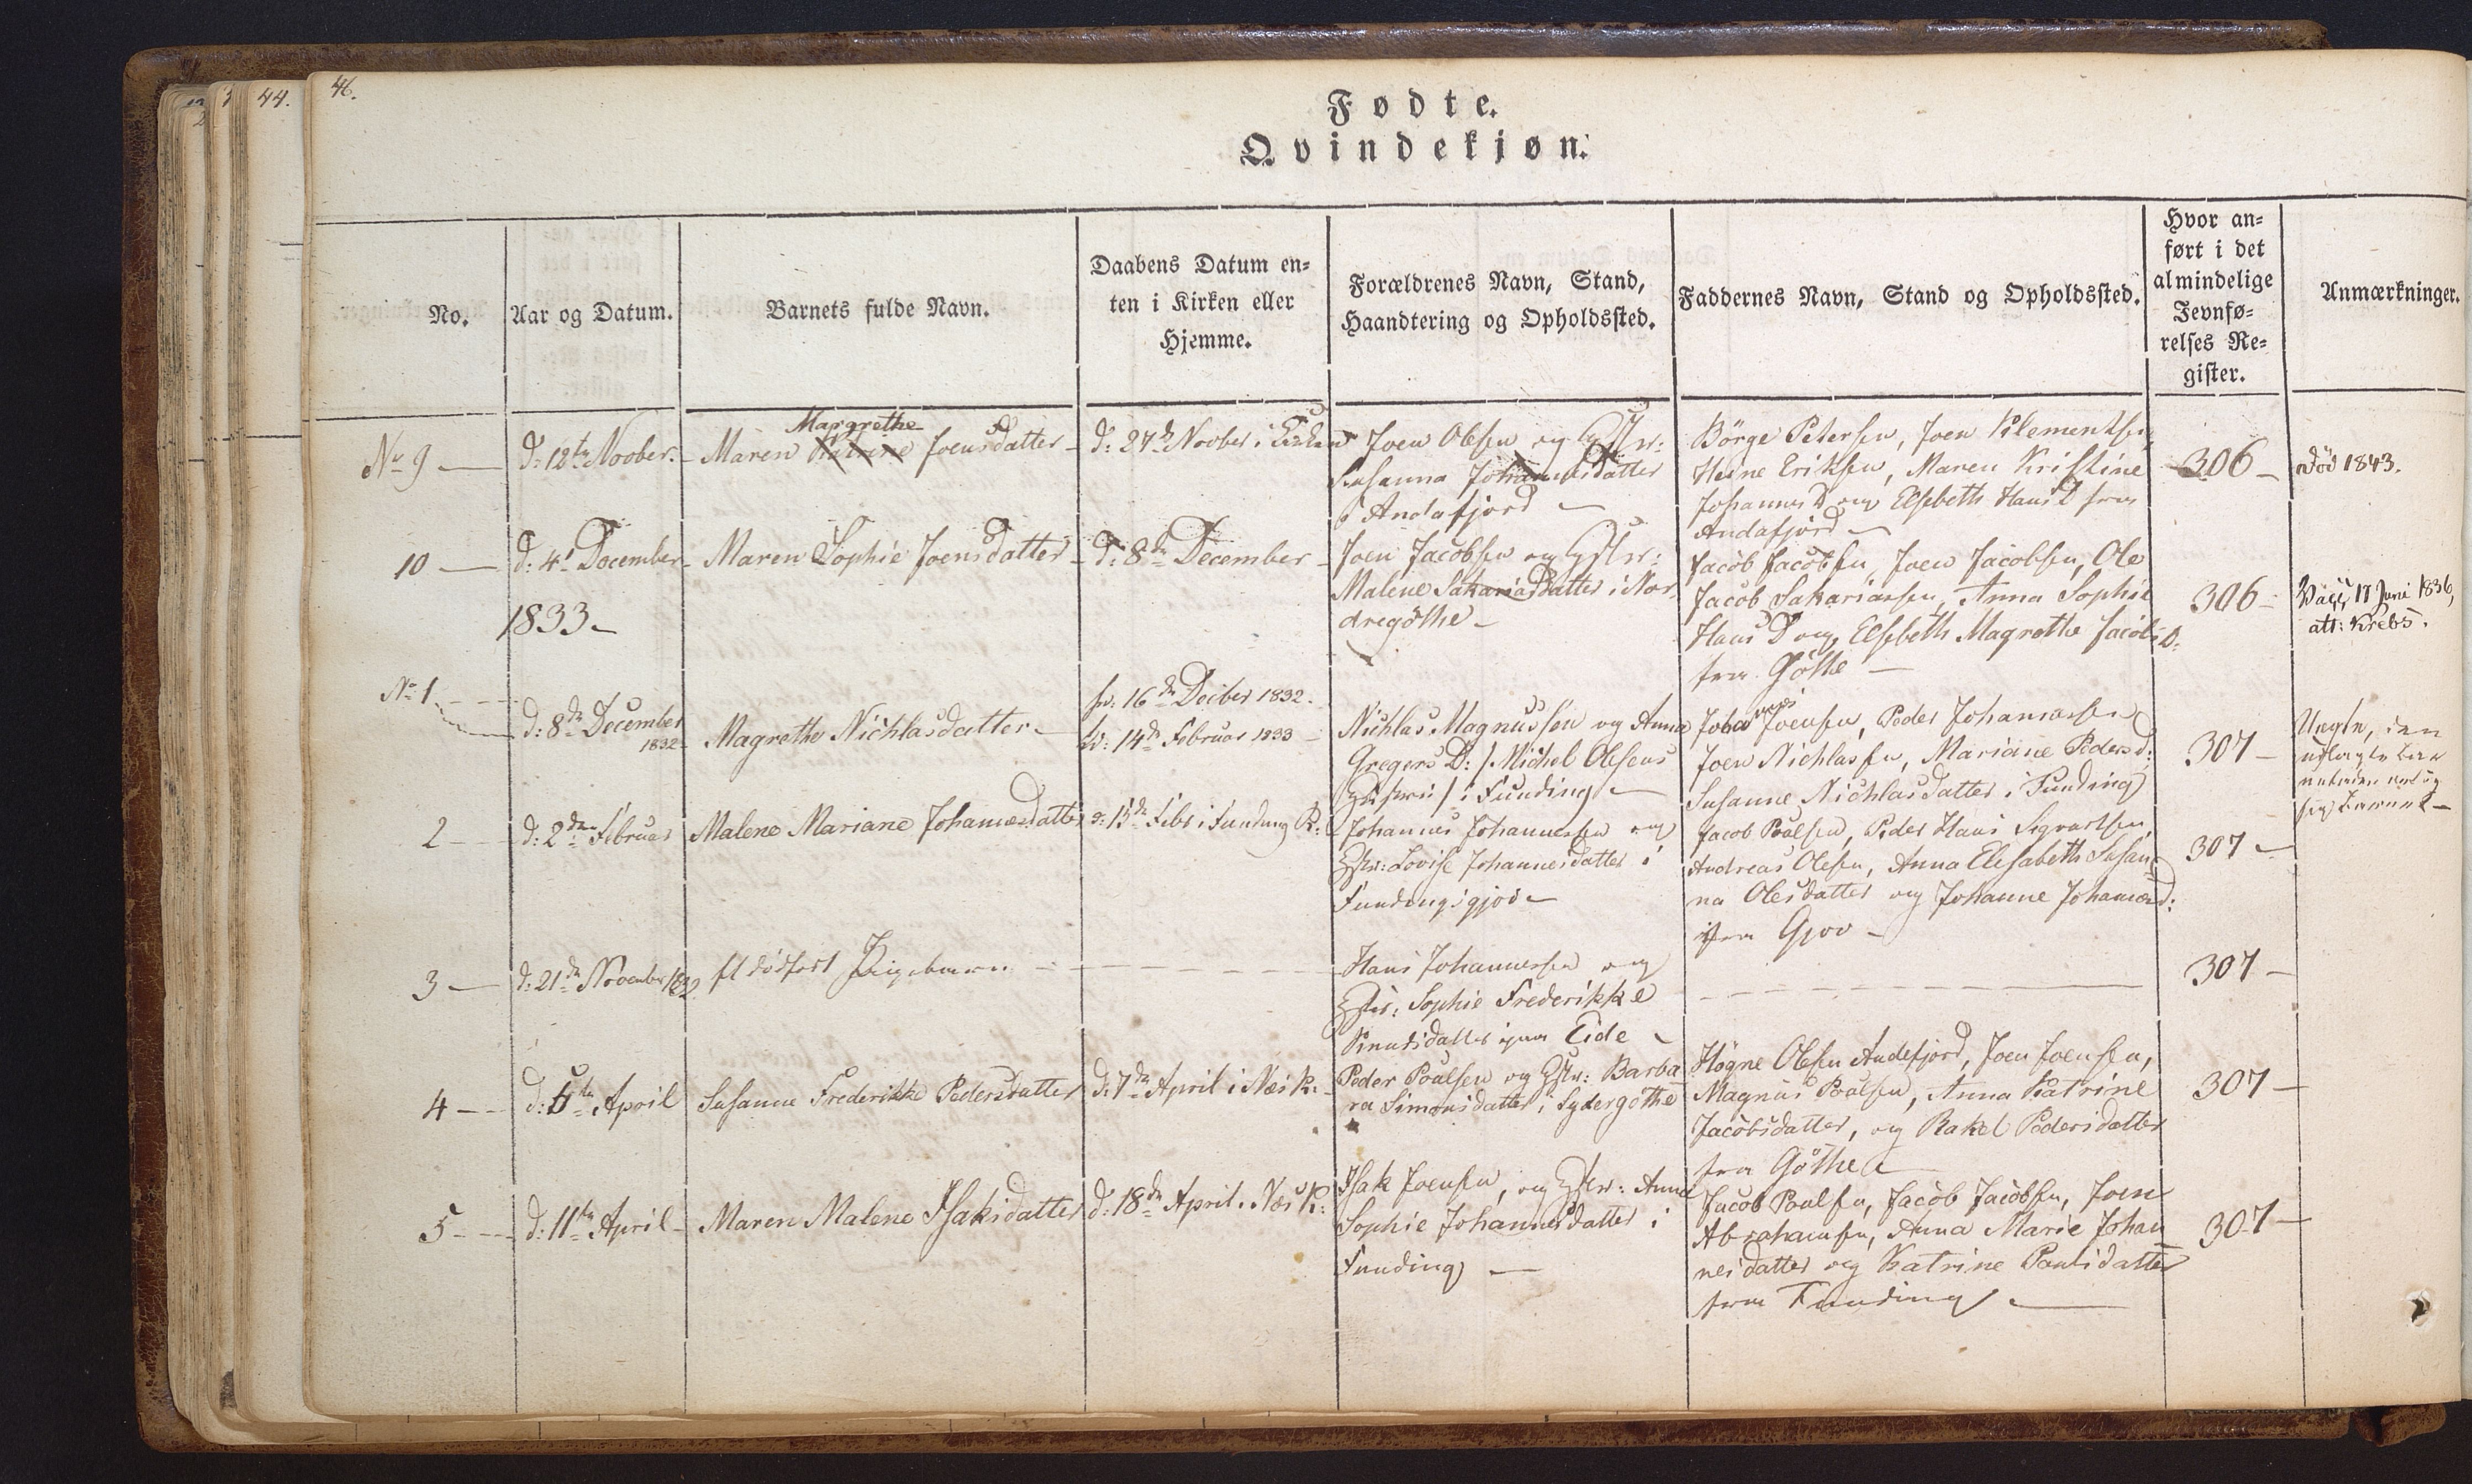 44.
46.
Fødte.
Qvindekjøn.
No.
Aar og Datum.
Barnets fulde Navn.
Daabens Datum en=
ten i Kirken eller
Hjemme.
Forældrenes Navn, Stand,
Haandtering og Opholdssted.
Faddernes Navn, Stand og Opholdssted.
Hvor an=
ført i det
almindelige
Jevnfø=
relses Re=
gister.
Anmærkninger.
No 9
d: 12te Novber.
Margrethe
Maren Katrine Joensdatter
d: 27de Novber i Kirken
Joen Olesen og Hstr:
Susanna Johannesdatter
i Andafjord
Börge Petersen, Joen Klementsen,
Heine Eriksen, Maren Kristine
Johannes D og Elsebeth Hans D fra
Andafjord
306
död 1843.
10
d: 4de December
Maren Sophie Joensdatter
d: 8de December
Joen Jacobsen og Hstr:
Malene Sakariasdatter i Nor
dregöthe
Jacob Jacobsen, Joen Jacobsen, Ole
Jacob Sakariasen, Anna Sophie
Hans D og Elsebeth Magrethe Jacobs D:
fra Göthe
306
Vacc 17 Juni 1836,
att: Krebs.
1833
No 1
d: 8de December
1832
Magrethe Nichlasdatter
16de Decber 1832.
14de Februar 1833
Nichlas Magnussen og Anna
Gregers D: / Michel Olesens
/ i Funding
Joensen, Peder Johannesen
Joen Nichlassen, Mariane Pedersd:
Susanne Nichlasdatter i Funding
307
Uægte, den
udlagte Bar
nefader
sig Barnet
2
d: 2den Februar
Malene Mariane Johannesdatter
d: 15de Febr i Funding K:
Johannes Johannessen og
Hstr: Lovise Johannesdatter i
Fundingsgjov
Jacob Poulsen, Peder Hans Sigvartsen,
Andreas Olesen, Anna Elisabeth Susan
na Olesdatter og Johanne Johannesd:
fra Gjov
307
3
d: 21de November 1832
et dödfödt Pigebarn
Hans Johannessen og
Hstr: Sophie Frederikke
Knudsdatter fra Eide
307
4
d: 6te April
Susanne Frederikke Pedersdatter
d: 7de April i Næs K:
Peder Poulsen og Hstr: Barba
ra Simonsdatter i Sydergöthe
Högne Olesen Andefjord, Joen Joensen,
Magnus Poulsen, Anna Katrine
Jacobsdatter, og Rakel Pedersdatter
fra Göthe
307
5
d: 11te April
Maren Malene Isaksdatter
d: 18de April i Næs K:
Isak Joensen, og Hstr: Anna
Sophie Johannesdatter i
Funding
Jacob Poulsen, Jacob Jacobsen, Joen
Abrahamsen, Anna Marie Johan
nesdatter og Katrine Poulsdatter
fra Funding
307